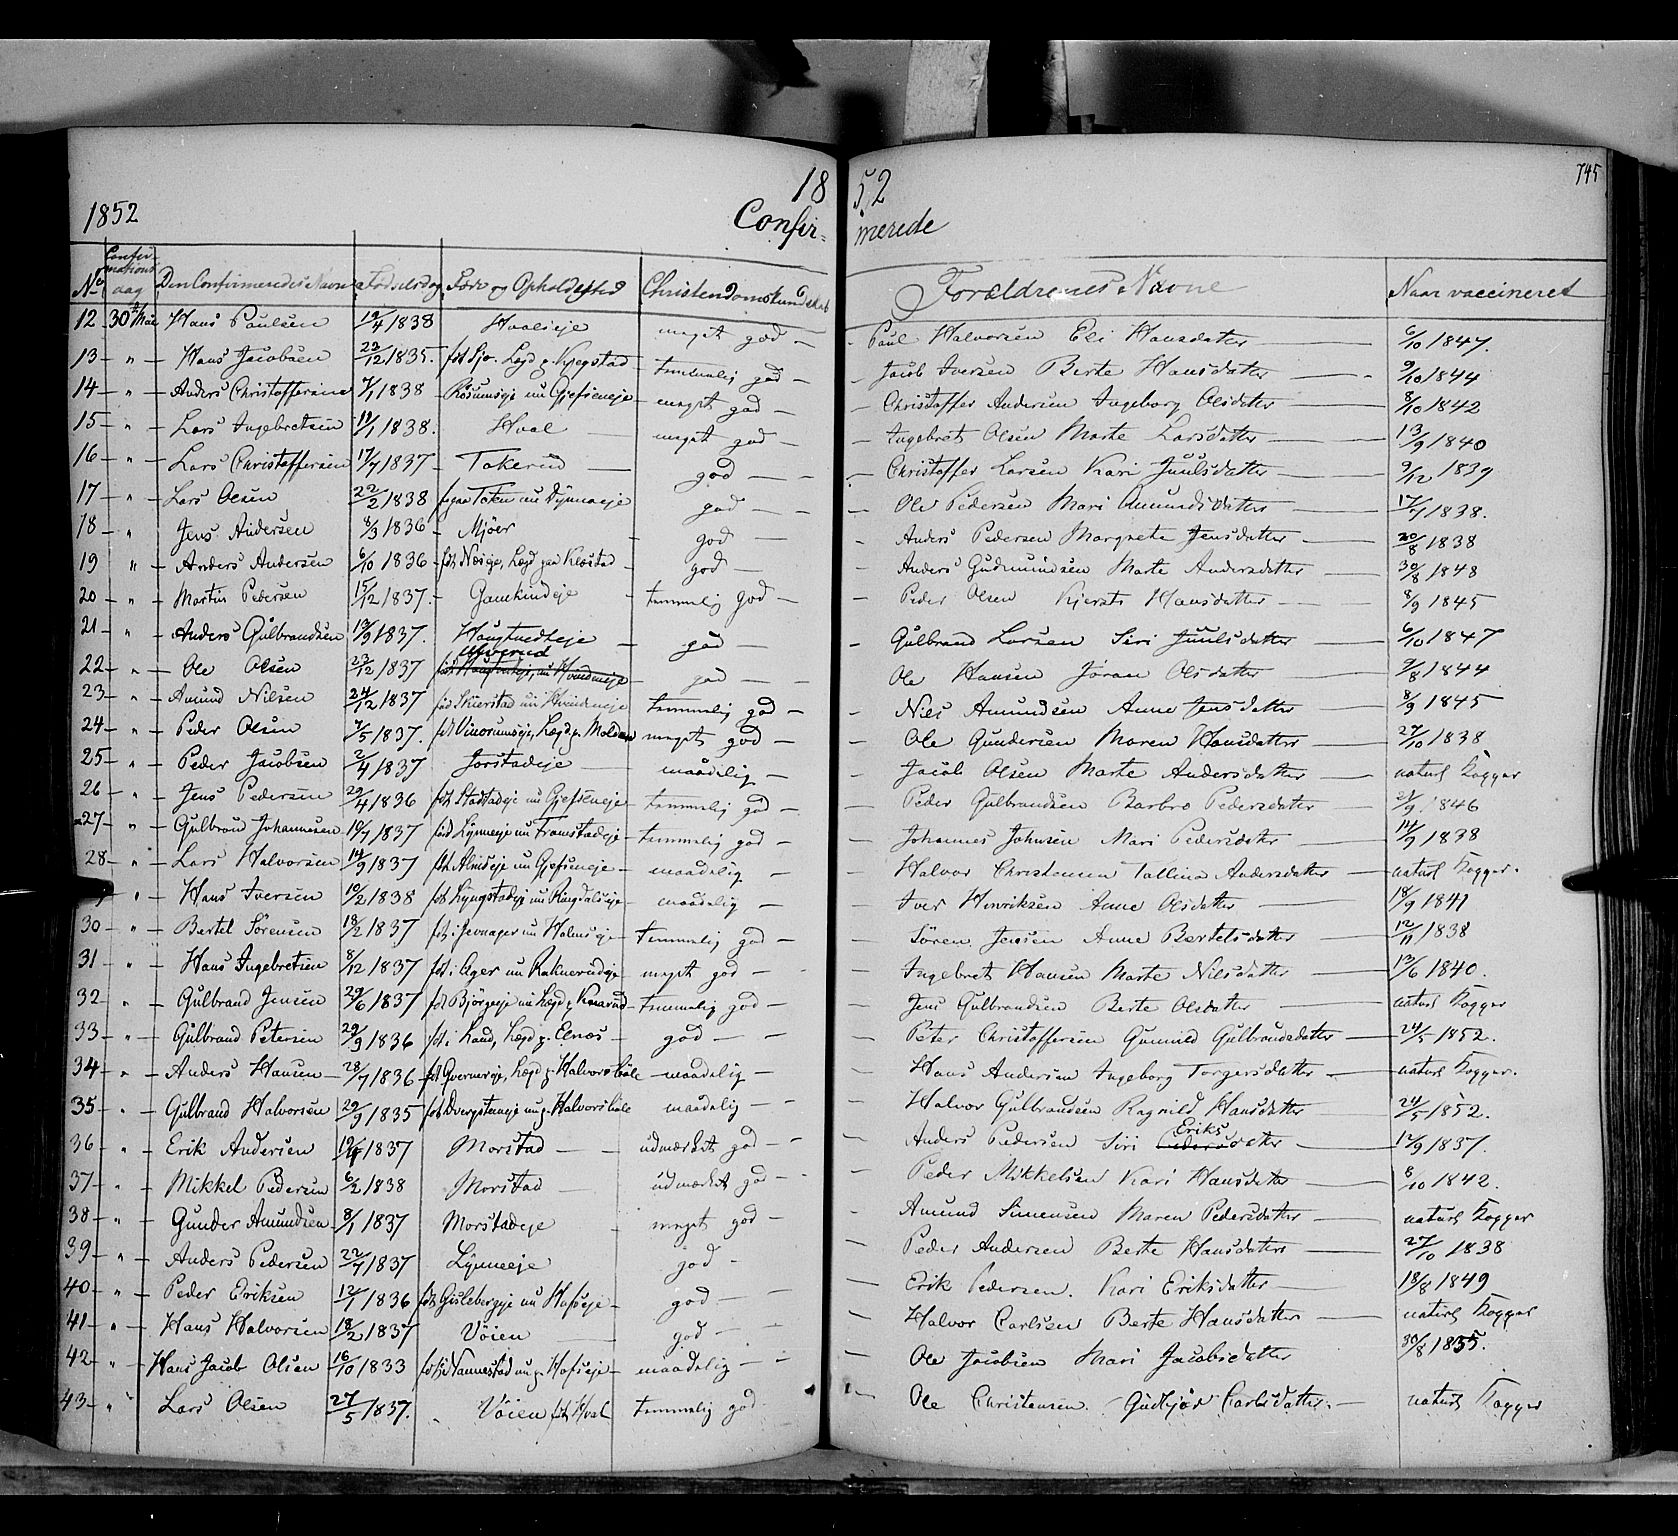 18 52
745
1852
Confir- merede
No Confirmations dag Den Confirmeredes Navn Fødselsdag Føde og Opholdssted Christendomskundskab Forældrenes Navne Naar vaccineret
12 30te Mai Hans Paulsen 19/4 1838 Hvalseje meget god Paul Halvorsen Eli Hansdatter 6/10 1847.
13 " Hans Jacobsen 22/12 1835. temmelig god Jacob Iversen Berte Hansdatter 9/10 1844
14 " Anders Christoffersen 7/1 1838 Røsumseje nu Gjefseneje meget god Christoffer Andersen Ingeborg Olsdatter 8/10 1842
15 " Lars Ingebretsen 19/1 1838. Hval meget god Ingebret Olsen Marte Larsdatter 13/9 1840
16 " Lars Christoffersen 17/7 1837 Tokerud god Christoffer Larsen Kari Juulsdatter 9/12 1839
17 " Lars Olsen 22/2 1838 god Ole Pedersen Mari Amundsdatter 17/7 1838.
18 " Jens Andersen 8/3 1836 Mjøer god Anders Pedersen Margrete Jensdatter 20/8 1838
19 " Anders Andersen 6/10 1836 fdt Næseje, Lægd paa Klæstad god Anders Gudmundsen Marte Andersdatter 30/8 1848
20 " Martin Pedersen 15/12 1837. Gamkindeje temmelig god Peder Olsen Kjersti Hansdatter 8/9 1845
21 " Anders Gulbrandsen 19/9 1837. Haugtvedteje god Gulbrand Larsen Siri Juulsdatter 6/10 1847
22 " Ole Olsen 23/12 1837 god Ole Hansen Jøran Olsdatter 7/8 1844
23 " Amund Nilsen 24/12 1837 fdt Skierstad nu Hvindeneje temmelig god Nils Amundsen Anne Jensdatter 8/9 1845
24 " Peder Olsen 7/5 1837. fdt Vinorumseje, Lægd p. Molden meget god Ole Gundersen Maren Hansdatter 27/10 1838
25 " Peder Jacobsen 2/4 1837 Jorstadeje maadelig Jacob Olsen Marte Andersdatter naturl Kopper
26 " Jens Pedersen 29/4 1836 fdt Stadstadeje nu Gjefseneje temmelig god Peder Gulbrandsen Barbro Pedersdatter 21/9 1846
27 " Gulbrand Johannesen 10/7 1837 født Lynneeje nu Framstadeje temmelig god Johannes Johnsen Mari Pedersdatter 14/9 1838
28 " Lars Halvorsen 14/9 1837 fdt Almseje nu Gjefseneje maadelig Halvor Christensen Tollina Andersdatter naturl Kopper.
" Hans Iversen 10/2 1838 fdt Lyngstadeje nu Ringdalseje maadelig Iver Henriksen Anne Olsdatter 18/9 1841
30 " Bertel Sørensen 18/2 1837 fdt i Jevnager nu Holmseje temmelig god Søren Jensen Anne Bertelsdatter 12/11 1838
31 " Hans Ingebretsen 8/12 1837 fdt i Ager nu Raknerudeje meget god Ingebret Hansen Marte Nilsdatter 13/6 1840.
32 " Gulbrand Jensen 29/6 1837 fdt Bjørgeeje nu Lægd p. Knarud temmelig god Jens Gulbrandsen Berte Olsdatter naturl Kopper
33 " Gulbrand Petersen 29/9 1836 fdt i Land, Lægd p. Elnæs god Peter Christoffersen Gunnild Gulbrandsdatter 24/5 1852.
34 " Anders Hansen 28/7 1836 fdt Gverneeje, Lægd p. Halvorsbøle maadelig Hans Andersen Ingeborg Torgersdatter naturl Kopper.
35 " Gulbrand Halvorsen 29/9 1835 fdt Dvergsteneje nu p. Halvorsbøle maadelig Halvor Gulbrandsen Ragnild Hansdatter 24/5 1852.
36 " Erik Andersen 1837 Morstad udmærket god Anders Pedersen Siri Eriksdatter 12/9 1837.
37 " Mikkel Pedersen 6/2 1838 Morstad udmærket god Peder Mikkelsen Kari Hansdatter 8/10 1842.
38 " Gunder Amundsen 8/1 1837 Morstadeje meget god Amund Simensen Maren Pedersdatter naturl Kopper
39 " Anders Pedersen 22/7 1837 Lynneeje god Peder Andersen Berte Hansdatter 27/10 1838
40 " Peder Eriksen 12/1 1836 fdt Gislebergeje nu Hofseje god Erik Pedersen. Kari Eriksdatter 18/8 1849
41 " Hans Halvorsen 18/2 1837 Vøien god Halvor Carlsen Berte Hansdatter naturl Kopper
42 " Hans Jacob Olsen 16/10 1833 fdt i Vannestad nu p. Hofseje maadelig Ole Jacobsen Mari Jacobsdatter 30/8 1835.
43 " Lars Olsen 27/5 1837. Vøien fdt Hval temmelig god Ole Christensen. Gudbjør Carlsdatter. naturl Kopper